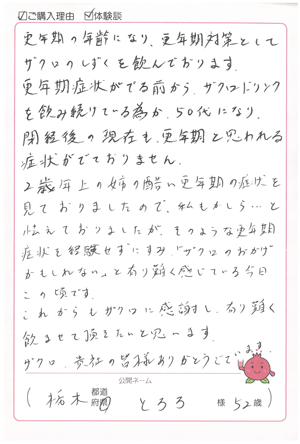 ☑ご購入理由 ☑体験談
更年期の年齢になり、更年期対策として
ザクロのしずくを飲んでおります。
更年期症状がでる前から、ザクロドリンク
を飲み続けている為か、50代になり、
閉経後の現在も、更年期と思われる
症状がでておりません。
2歳年上の姉の酷い更年期の症状を
見ておりましたので、私もかしら…と
怯えておりましたが、そのような更年期
症状を経験せずにすみ、「ザクロのおかげ
かもしれない」と有り難く感じている今日
この頃です。
これからもザクロに感謝し、有り難く
飲ませて頂きたいと思います。
ザクロ、貴社の皆様ありがとうございます。
公開ネーム
(栃木 都道府県 とろろ 様 52歳)